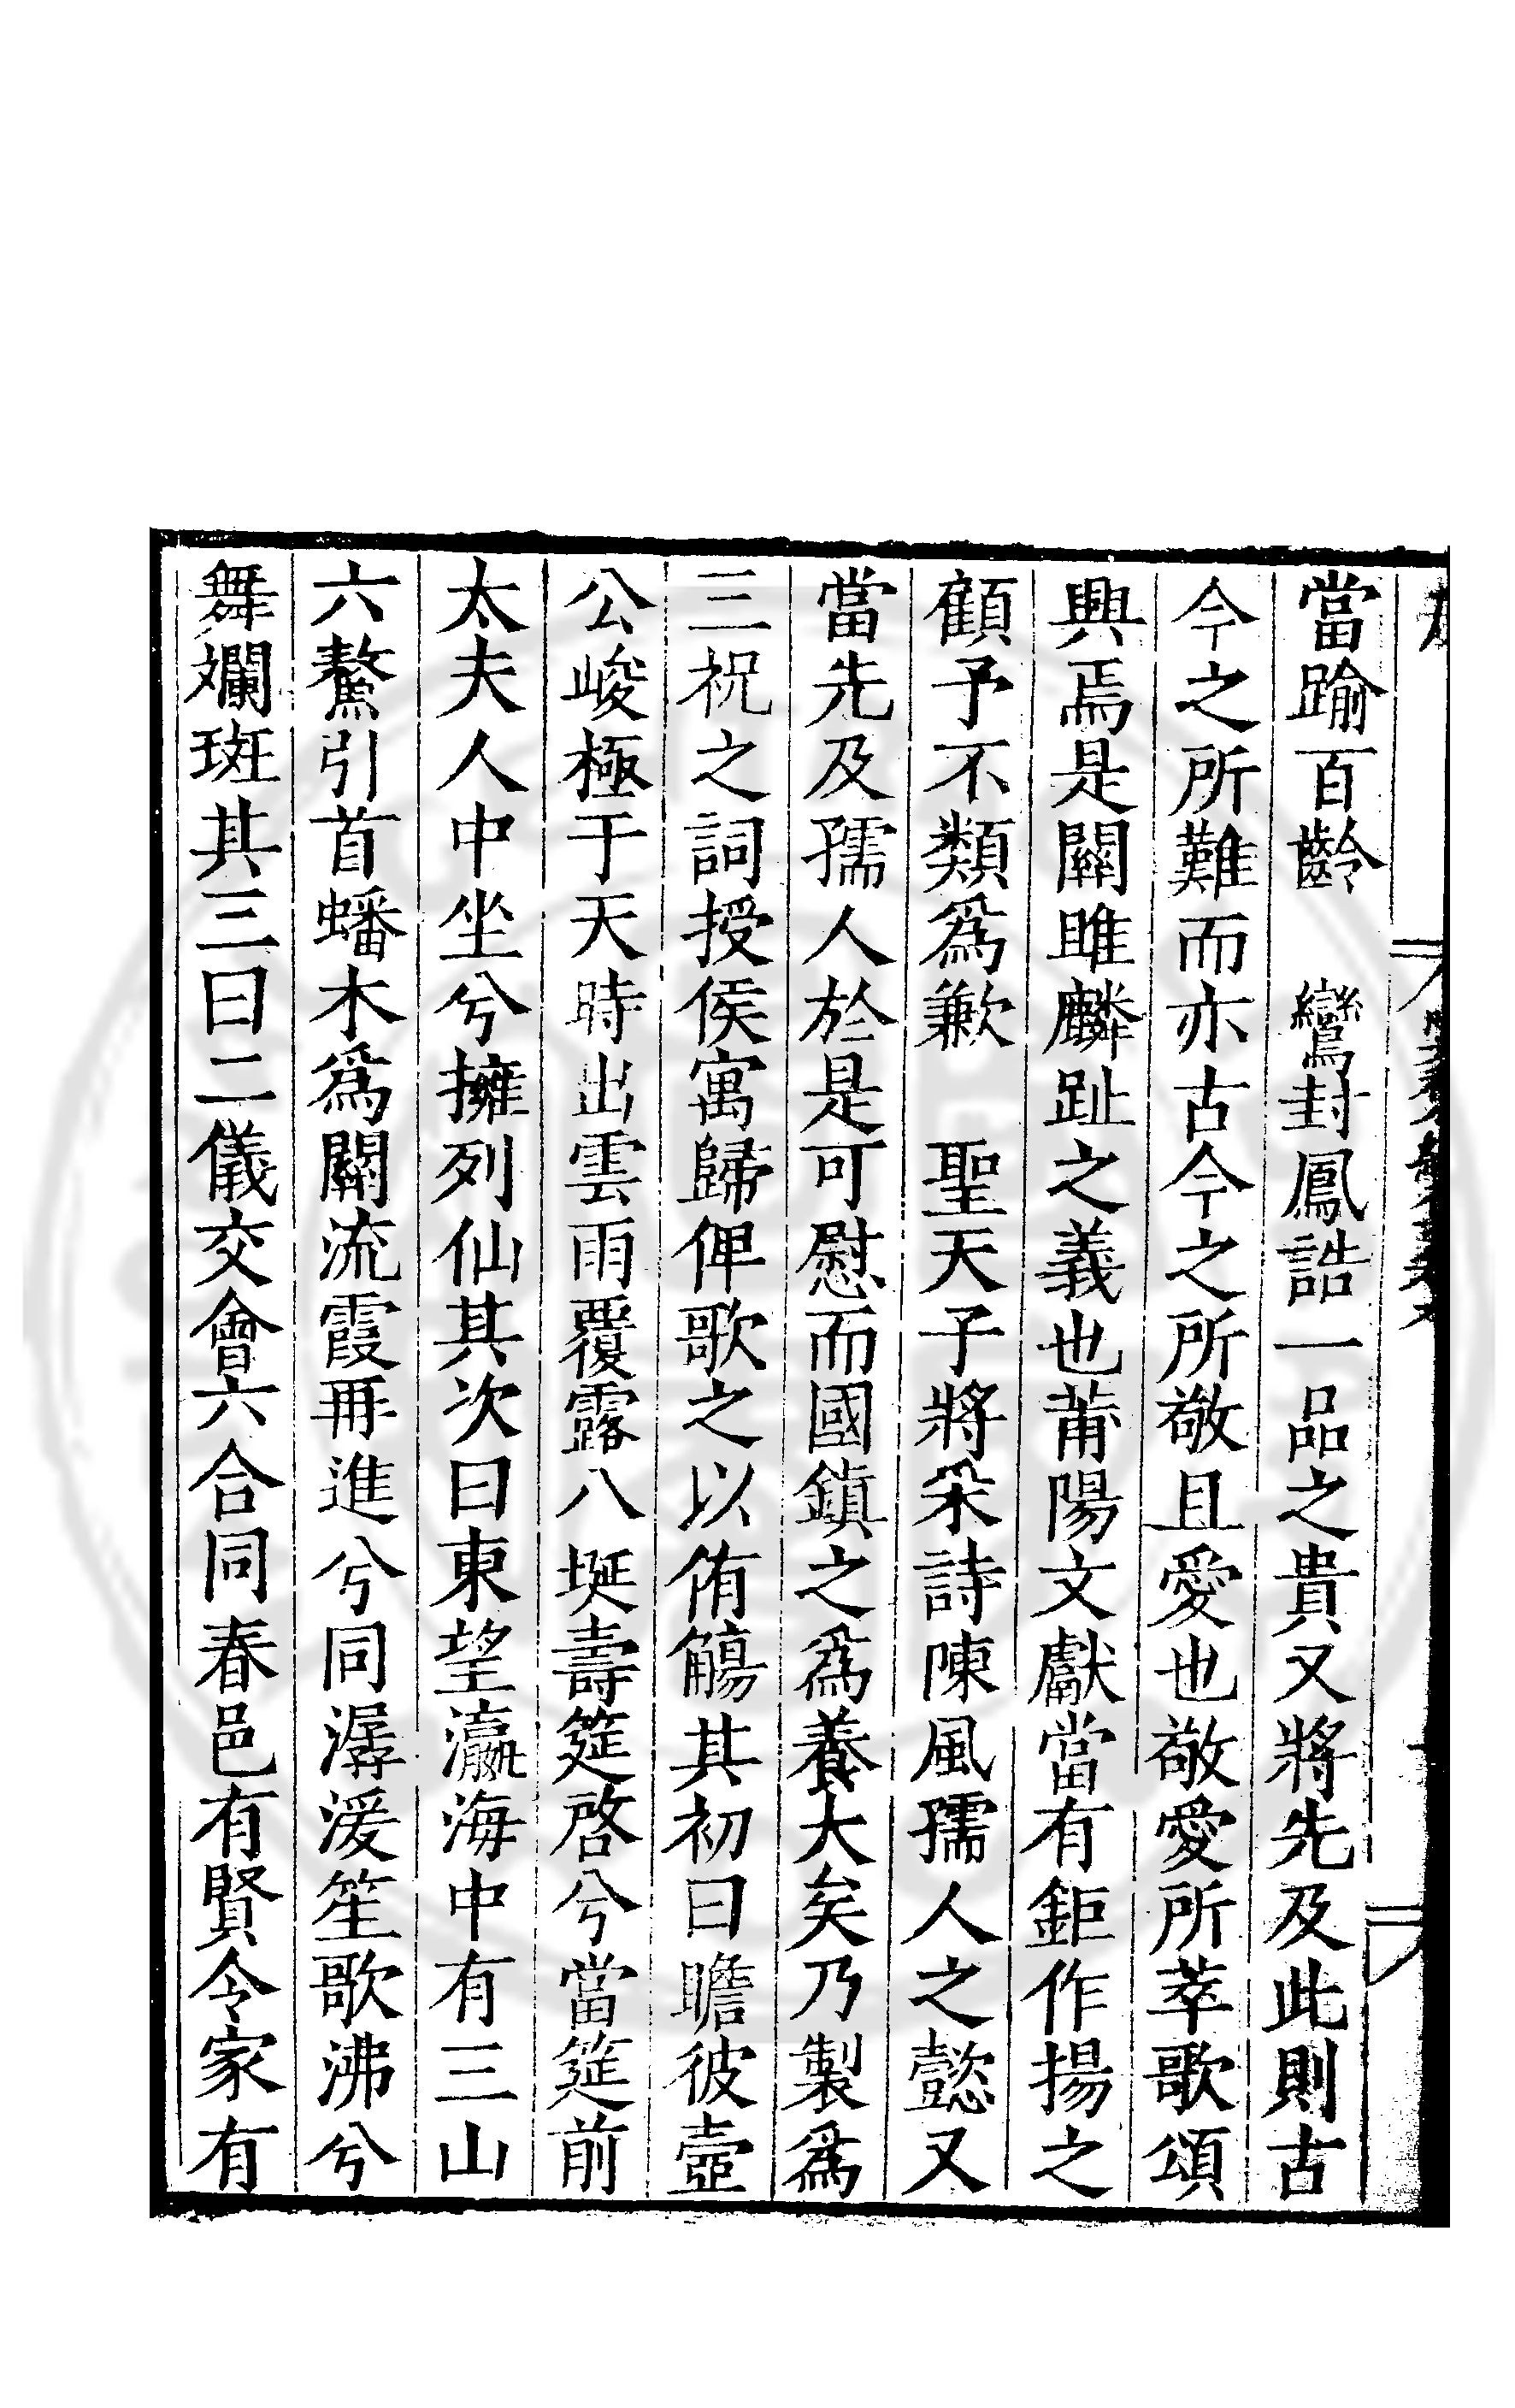 當踰百齡　鸞封鳳誥一品之貴又將先及此則古
今之所難而亦古今之所敬且愛也敬愛所萃歌頌
興焉是關雎麟趾之義也莆陽文獻當有鉅作揚之
顧予不類爲歉　聖天子將采詩陳風孺人之懿又
當先及孺人於是可慰而國鎮之爲養大矣乃製爲
三祝之詞授侯寓歸俾歌之以侑觴其初曰瞻彼壺
公峻極于天時出雲雨覆露八埏壽筵啓兮當筵前
太夫人中坐兮擁列仙其次曰東望瀛海中有三山
六鰲引首蟠木爲關流霞再進兮同潺湲笙歌沸兮
舞斕斑其三曰二儀交會六合同春邑有賢令家有